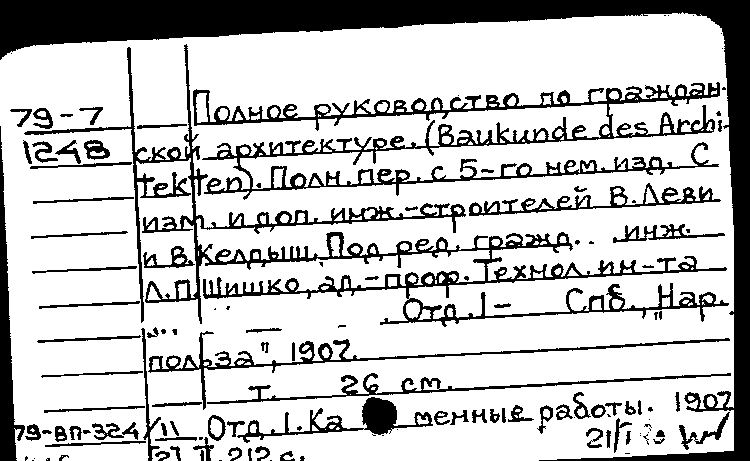 79-7 Полное руководство по граждан-
1248 ской архитектуре. (Baukunde des Archi-
tekten). Полн. пер. с 5-го нем. изд. С
изм. и доп. инж.-строителей В. Леви
и В. Келдыш. Под ред. гражд. инж.
Л.П. Шишко, ад.-проф. Технол. ин-та
Отд. I- Спб., „Нар.
польза", 1907.
т. 26 см.
79-вп-324/11 Отд. I. Ка менные работы. 1907
[2] II, 212 с.